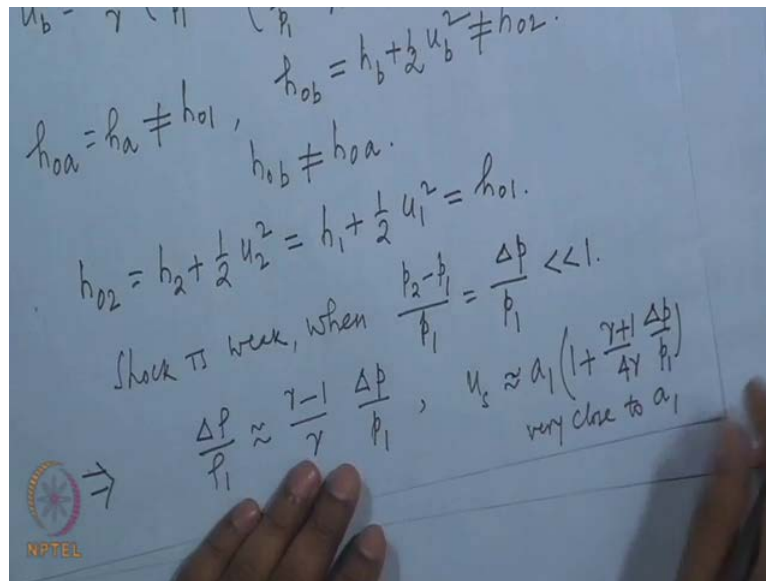 u_b = γ ( p₁ ( p₁
h_{ob} = h_b + ½ u_b² ≠ h_{02}.
h_{0a} = h_a ≠ h_{01},
h_{0b} ≠ h_{0a}.
h_{02} = h_2 + ½ u_2² = h_1 + ½ u_1² = h_{01}.
Shock is weak, when (p_2 - p_1)/p_1 = Δp/p_1 <<1.
⇒ Δρ/ρ_1 ≈ (γ-1)/γ Δp/p_1, u_s ≈ a_1 (1 + (γ+1)/4γ Δp/p_1)
very close to a_1
NPTEL